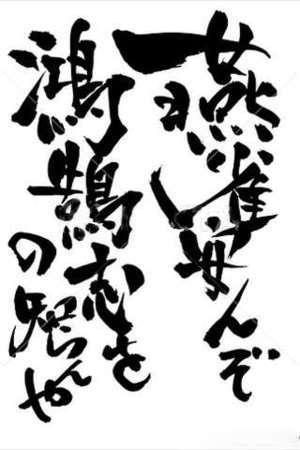 燕雀安んぞ
鴻鵠の志を知らんや